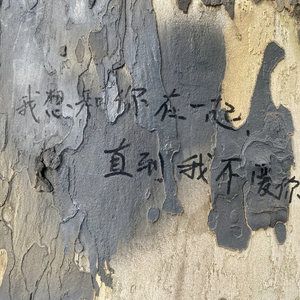 我想和你在一起,
直到我不爱你